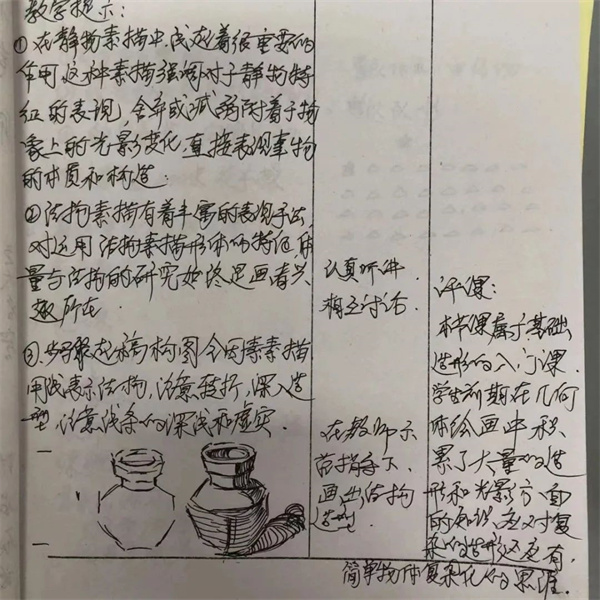 教学提示:
①在静物素描中,线起着很重要的
作用,这种素描强调对于静物特
征的表现,舍弃或减弱附着于物
象上的光影变化,直接表现事物
的体质和构造.
②结构素描有着丰富的表现手法,
对运用结构素描形体的特征,
量与结构的研究始终是画者兴
趣所在.
③步骤起稿构图全因素素描
用线表示结构,注意转折,深入造
型,注意线条的深浅和虚实.
认真听讲.
相互讨论.
在教师示
范指导下,
画出结构
造型.
评课:
本节课属于基础
造形的入门课.
学生前期在几何
体绘画中积
累了大量的造
形和光影方面
的知识,应对复
杂的造形还应有
简单物体复杂化的思维.